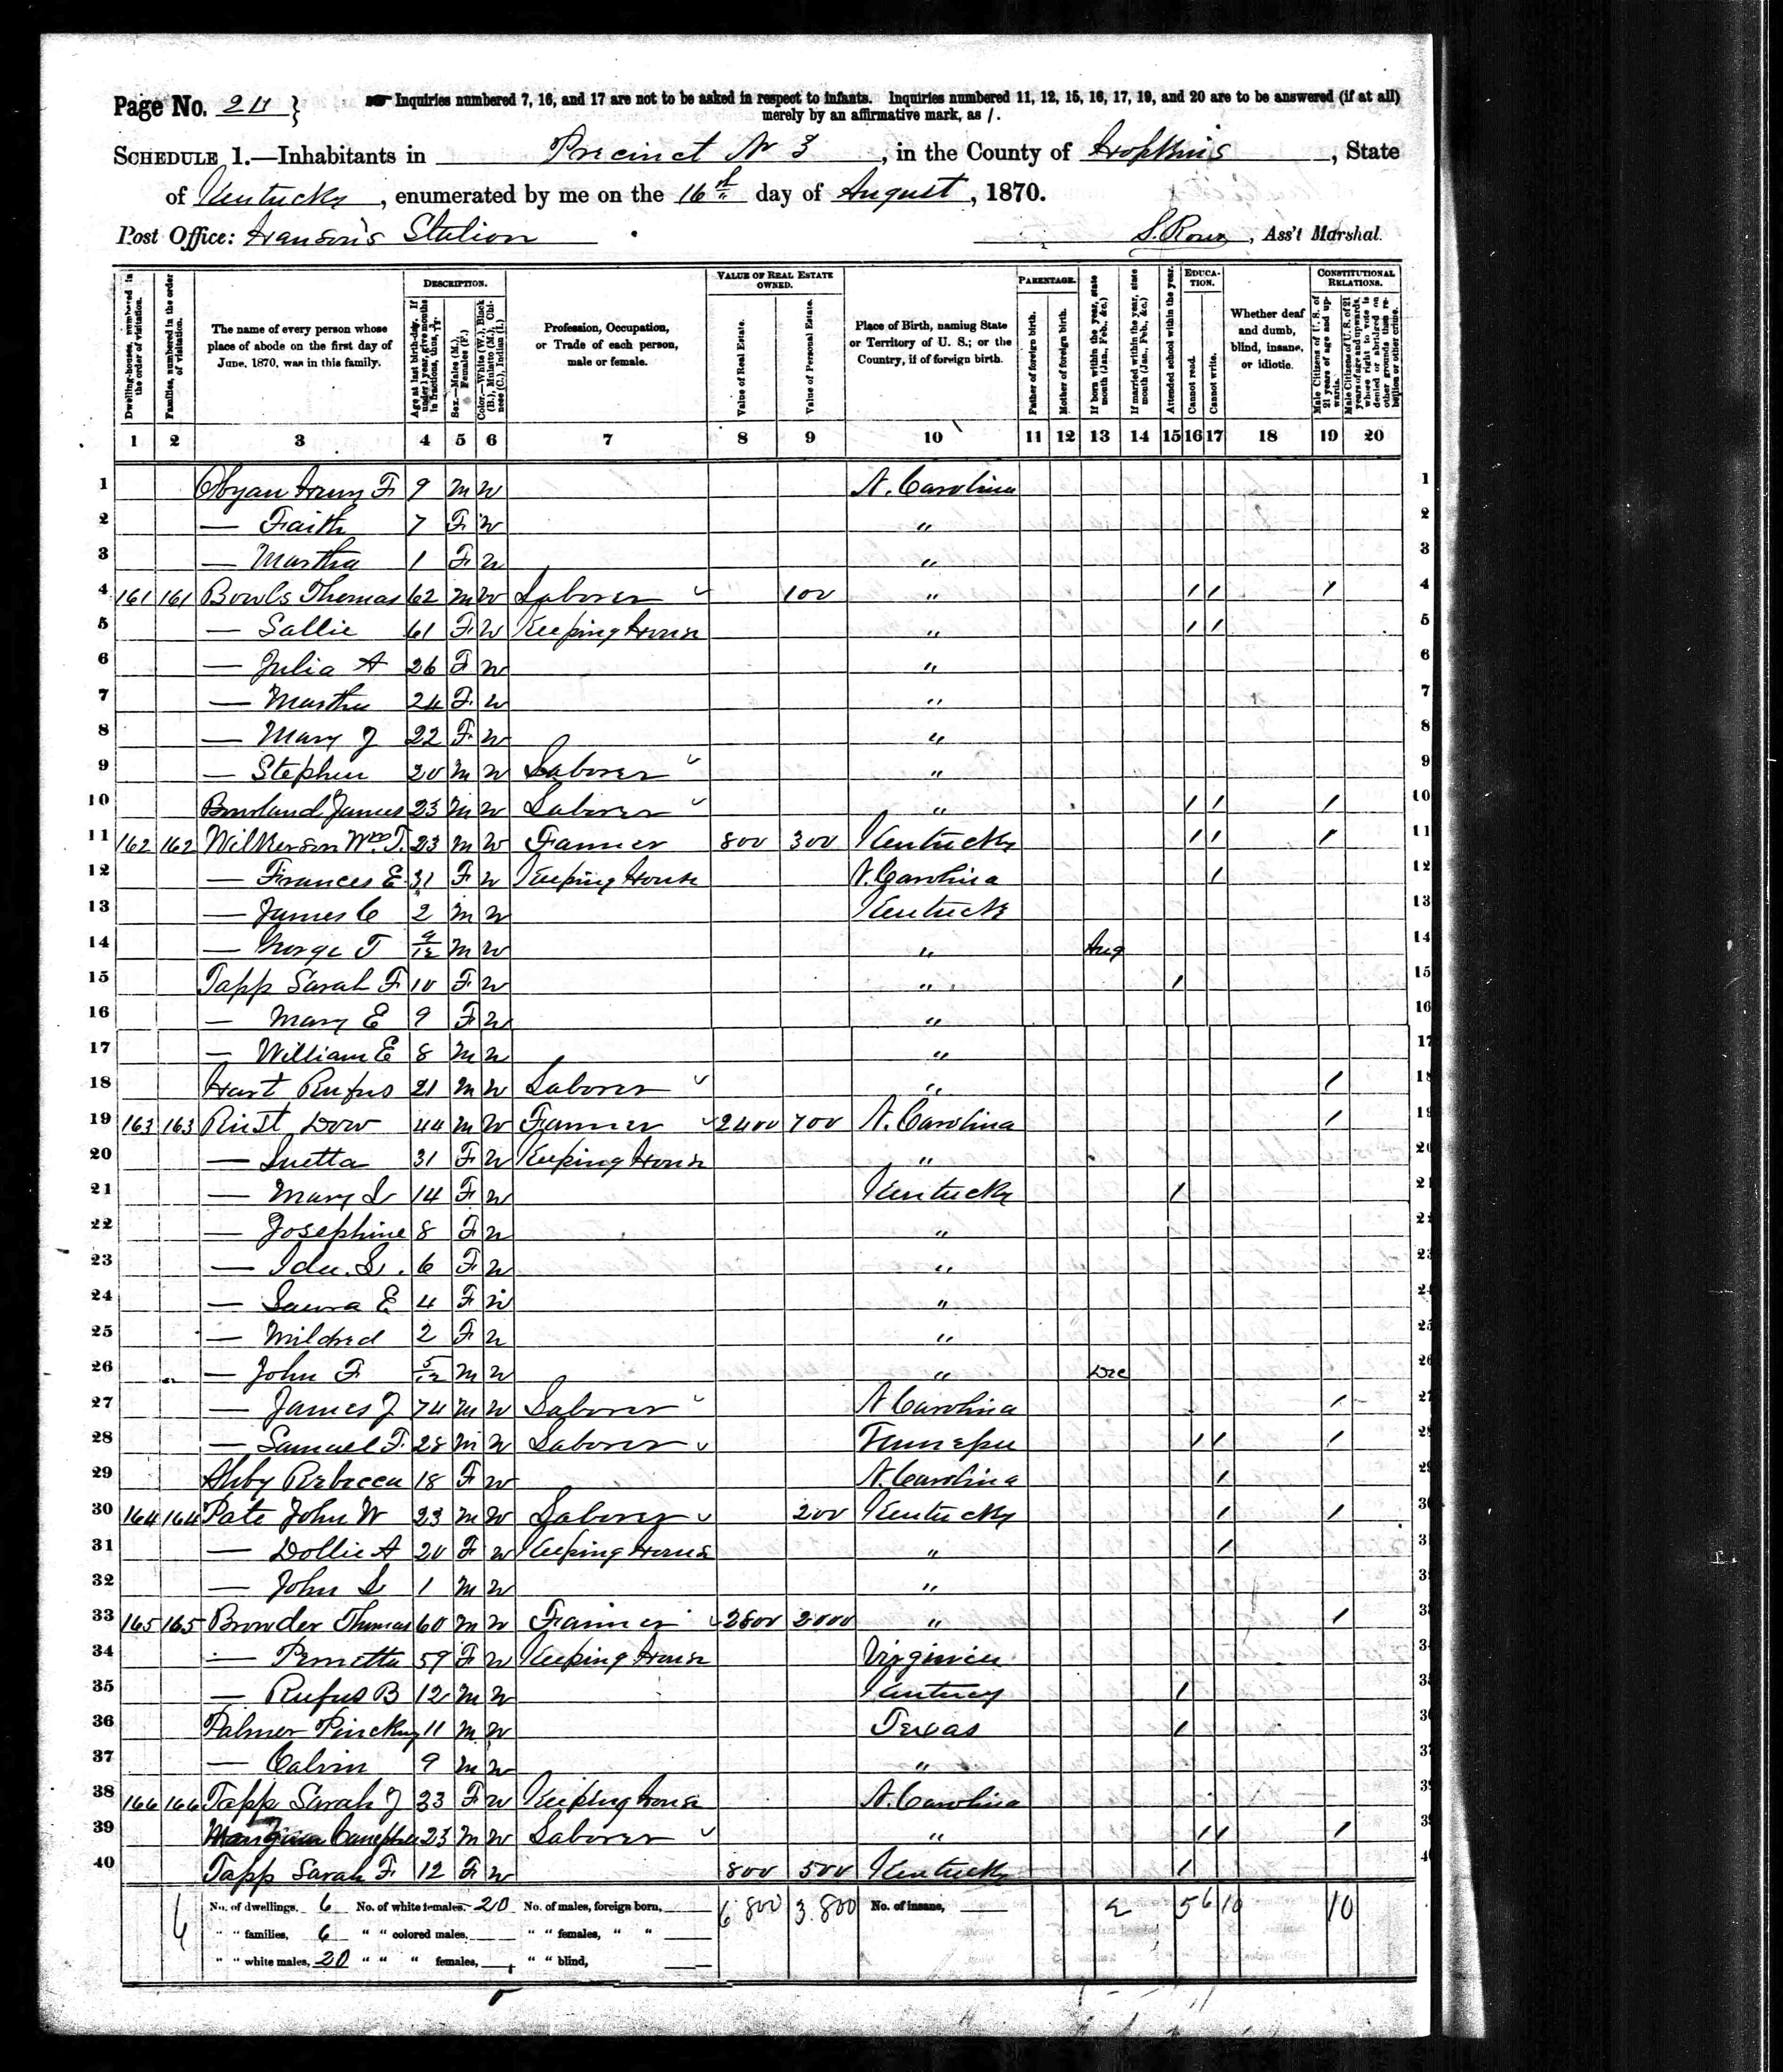 Page No. 24 } Inquiries numbered 7, 16, and 17 are not to be asked in respect to infants. Inquiries numbered 11, 12, 15, 16, 17, 19, and 20 are to be answered (if at all)
merely by an affirmative mark, as /.
SCHEDULE 1.—Inhabitants in Precinct No 3, in the County of Hopkins, State
of Kentucky, enumerated by me on the 16th day of August, 1870.
Post Office: Hanson's Station
Ass't Marshal.
DESCRIPTION. VALUE OF REAL ESTATE OWNED. PARENTAGE. EDUCATION. CONSTITUTIONAL RELATIONS.
Dwelling-houses, numbered in the order of visitation.
Families, numbered in the order of visitation.
The name of every person whose place of abode on the first day of June, 1870, was in this family.
Age at last birth-day. If under 1 year, give months in fractions, thus, 3/12.
Sex.—Males (M.), Females (F.)
Color.—White (W.), Black (B.), Mulatto (M.), Chinese (C.), Indian (I.)
Profession, Occupation, or Trade of each person, male or female.
Value of Real Estate.
Value of Personal Estate.
Place of Birth, naming State or Territory of U. S.; or the Country, if of foreign birth.
Father of foreign birth.
Mother of foreign birth.
If born within the year, state month (Jan., Feb., &c.)
If married within the year, state month (Jan., Feb., &c.)
Attended school within the year.
Cannot read.
Cannot write.
Whether deaf and dumb, blind, insane, or idiotic.
Male Citizens of U. S. of 21 years of age and upwards.
Male Citizens of U. S. of 21 years of age and upwards, whose right to vote is denied or abridged on other grounds than rebellion or other crime.
1 2 3 4 5 6 7 8 9 10 11 12 13 14 15 16 17 18 19 20
1 F 9 M W N. Carolina 1
2 — Faith 7 F W " 2
3 — Martha 1 F W " 3
4 161 161 Bowls Thomas 62 M W Laborer 100 " / / / 4
5 — Sallie 61 F W Keeping House " / / 5
6 — Julia A 26 F W " 6
7 — Martha 24 F W " 7
8 — Mary J 22 F W " 8
9 — Stephen 20 M W Laborer " 9
10 James 23 M W Laborer " / / / 10
11 162 162 Wilkerson Wm T. 23 M W Farmer 800 300 Kentucky / / / 11
12 — Frances E 31 F W Keeping House N. Carolina / 12
13 — James C 2 M W Kentucky 13
14 — George T 9/12 M W " Aug 14
15 Tapp Sarah F 10 F W " / 15
16 — Mary E 9 F W " 16
17 — William E 8 M W " 17
18 Hart Rufus 21 M W Laborer " / 18
19 163 163 Rust Dow 44 M W Farmer 2400 700 N. Carolina / 19
20 — Luetta 31 F W Keeping House " 20
21 — Mary L 14 F W Kentucky / 21
22 — Josephine 8 F W "
23 — Ida L. 6 F W "
24 — Laura E 4 F W "
25 — Mildred 2 F W "
26 — John F 5/12 M W " Dec
27 — James J 74 M W Laborer N Carolina /
28 — Samuel F. 28 M W Laborer Tennessee / / /
29 Ashby Rebecca 18 F W N. Carolina /
30 164 164 Pate John W 23 M W Laborer 200 Kentucky / /
31 — Dollie A 20 F W Keeping House " /
32 — John L 1 M W "
33 165 165 Browder Thomas 60 M W Farmer 2800 2000 " /
34 — 59 F W Keeping House Virginia
35 — Rufus B 12 M W Kentucky /
36 Palmer Pinckney 11 M W Texas /
37 — Calvin 9 M W "
38 166 166 Tapp Sarah J 33 F W Keeping House N. Carolina
39 23 M W Laborer " / / /
40 Tapp Sarah F 12 F W 800 500 Kentucky /
No. of dwellings, 6 No. of white females, 20 No. of males, foreign born, 6 800 3.800 No. of insane, 2 5 6 10 10
" " families, 6 " " colored males, " " females, " "
" " white males, 20 " " " females, " " blind,